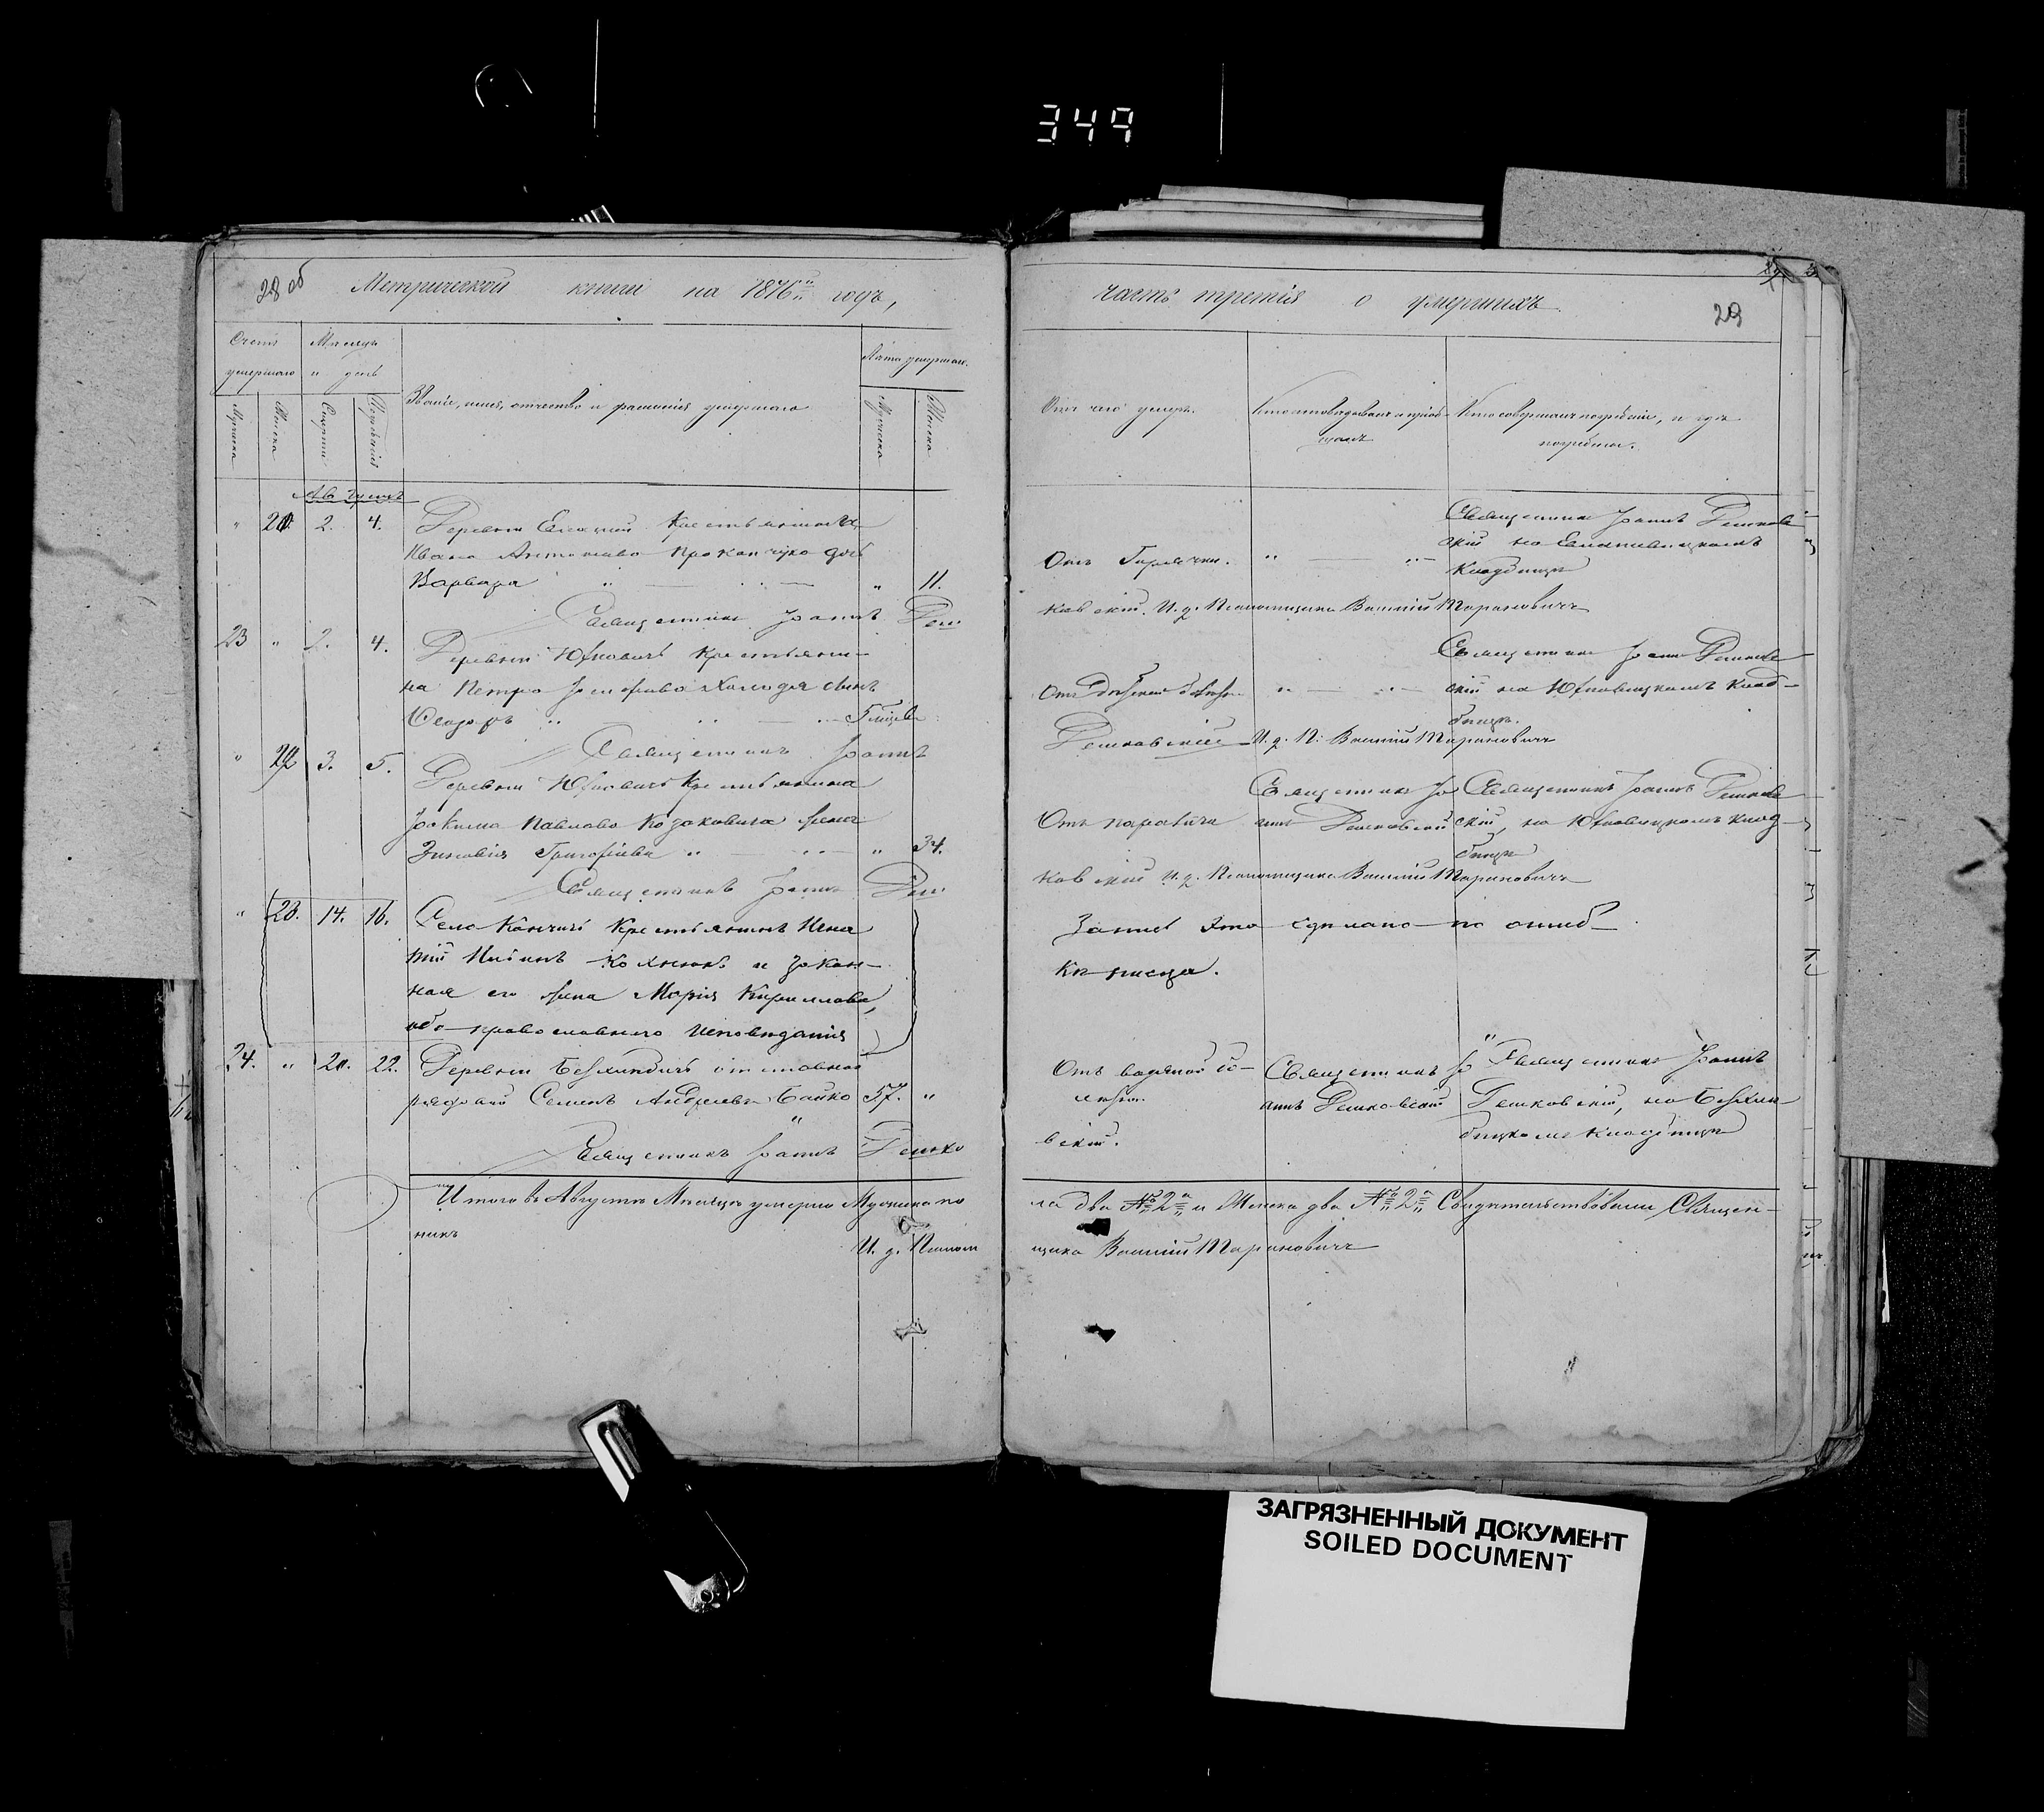 349
28 об
Метрической книги на 1876й годъ,
часть третія о умершихъ.
29
Счетъ умершаго
Мѣсяцъ и день
Званіе, имя, отчество и фамилія умершаго
Лѣта умершаго.
Мужска
Женска
Смерти
Погребенія
Мужска
Женска
Отъ чего умеръ.
Кто исповѣдывалъ и пріобщалъ
Кто совершалъ погребеніе, и гдѣ
погребены.
Августъ
" 21. 2. 4. Деревни крестьянина
Ивана Антонова Прокопчука дочь
Варвара " — " — " 11.
Отъ Горячки. " — " —
Священникъ Іоаннъ Решков
скій на
кладбищѣ
Священникъ Іоаннъ Реш
ковскій. И. д. Псаломщика Василій Тарановичъ
23 " 2. 4. Деревни Юхновичъ крестьяни-
на Петра сынъ
Ѳеодоръ " — " —
" — " —
Священникъ Іоаннъ Решков
скій на Юхновицкомъ клад-
бищѣ.
Священникъ Іоаннъ
Решковскій И. д. П. Василій Тарановичъ
" 22 3. 5. Деревни Юхновичъ крестьянина
Іоакима Павлова Козаковича жена
Зиновія Григоріева " — " — " 34.
Отъ паралича
Священникъ Іо
аннъ Решковскій
Священникъ Іоаннъ Решков
скій, на Юхновицкомъ клад-
бищѣ
Священникъ Іоаннъ Реш
ковскій И. д. Псаломщика Василій Тарановичъ
" 23. 14. 16. Село крестьянинъ Игна
тій и закон-
ная его жена Марія Кириллова,
оба православнаго исповѣданія
Запись эта сдѣлана по ошиб-
кѣ писца.
24. " 20. 22. Деревни отставной
рядовой Семенъ Андреевъ Бойко 57. "
Отъ водяной бо-
лѣзни.
Священникъ Іо
аннъ Решковскій
Священникъ Іоаннъ
Решковскій, на
кладбищѣ
Священникъ Іоаннъ Решко
вскій.
Итого въ Августѣ мѣсяцѣ умерло Мужска по
ла два № 2а и Женска два № 2а Свидѣтельствовали Священ-
никъ
И. д. Псалом
щика Василій Тарановичъ
ЗАГРЯЗНЕННЫЙ ДОКУМЕНТ
SOILED DOCUMENT